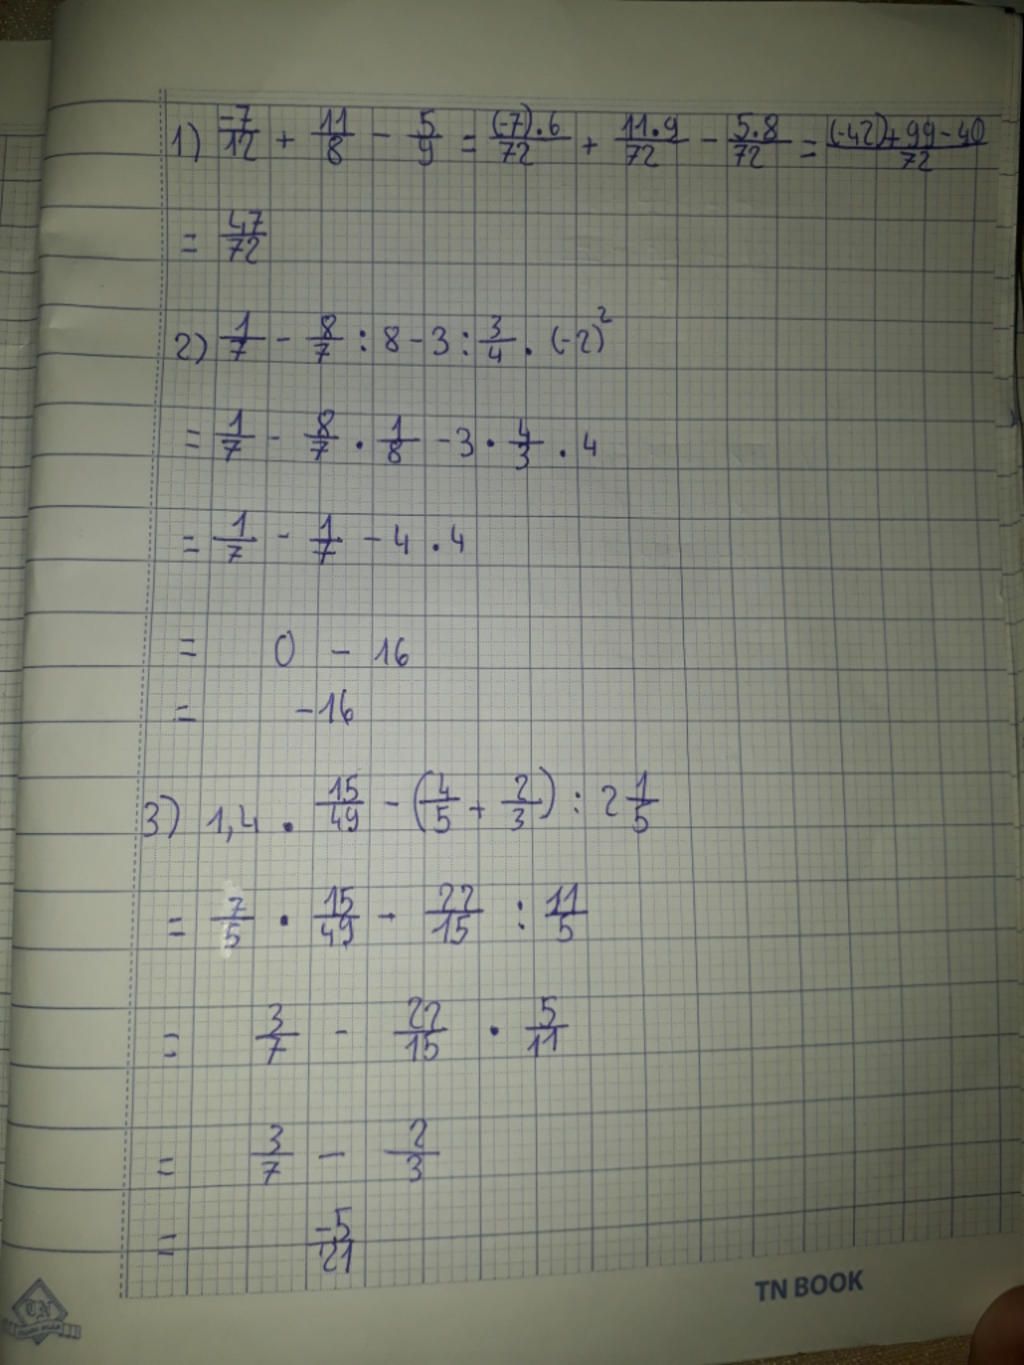 1) -7/12 + 11/8 - 5/9 = (-7).6/72 + 11.9/72 - 5.8/72 = (-42)+99-40/72
= 47/72
2) 1/7 - 8/7 : 8 - 3 : 3/4 . (-2)²
= 1/7 - 8/7 . 1/8 - 3 . 4/3 . 4
= 1/7 - 1/7 - 4 . 4
= 0 - 16
= -16
3) 1,4 . 15/49 - (4/5 + 2/3) : 2 1/5
= 7/5 . 15/49 - 22/15 : 11/5
= 3/7 - 22/15 . 5/11
= 3/7 - 2/3
= -5/21
TN BOOK
TN